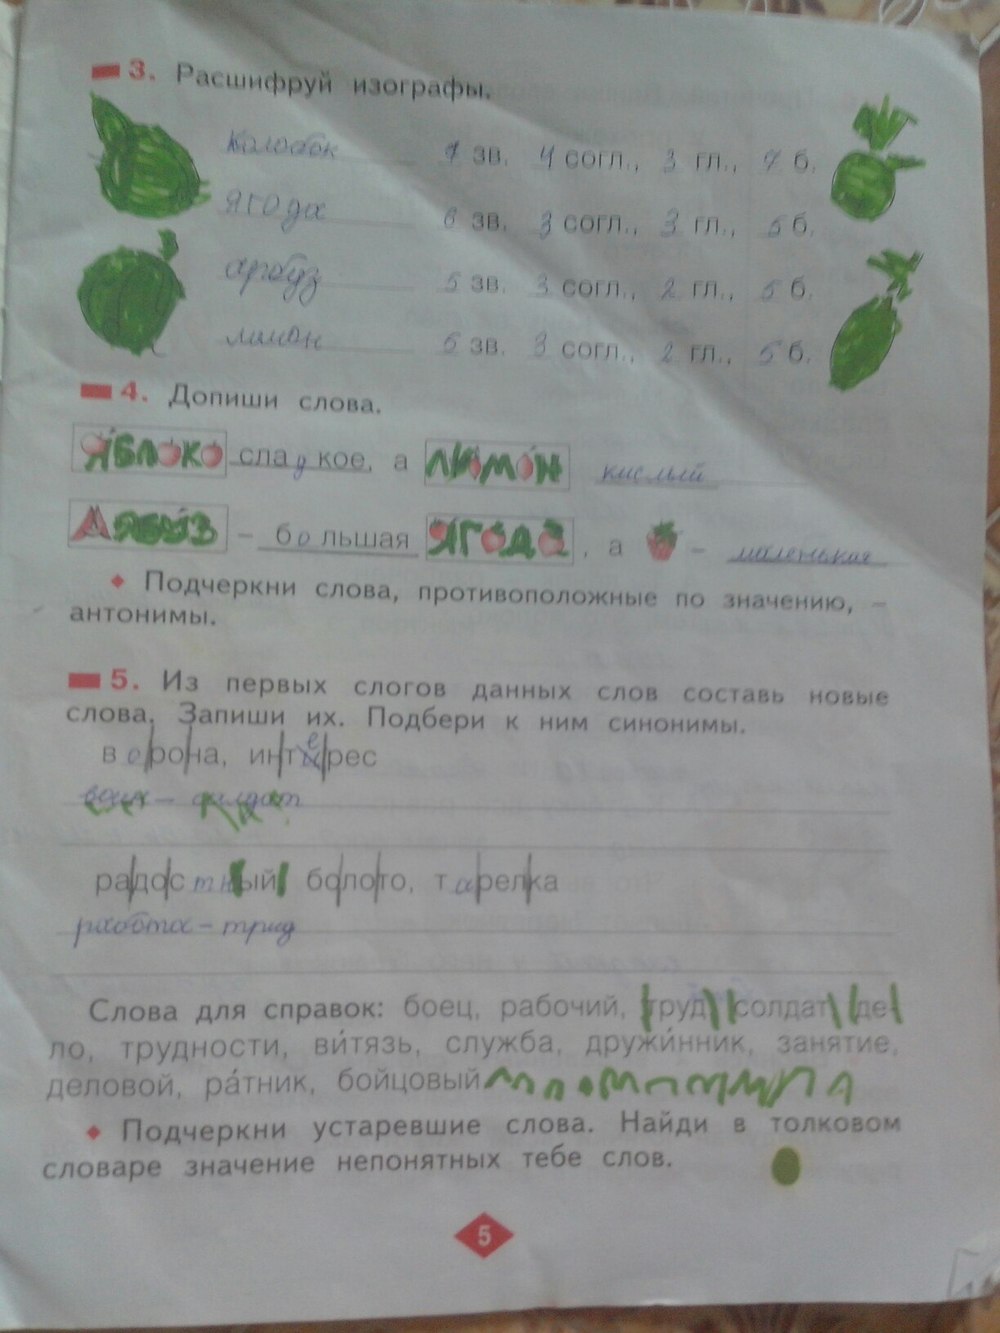 3. Расшифруй изографы.
колобок 7 зв. 4 согл., 3 гл., 7 б.
ягода 6 зв. 3 согл., 3 гл., 5 б.
арбуз 5 зв. 3 согл., 2 гл., 5 б.
лимон 5 зв. 3 согл., 2 гл., 5 б.
4. Допиши слова.
ЯБЛОКО сладкое, а ЛИМОН кислый
АРБУЗ – большая ЯГОДА, а – маленькая
♦ Подчеркни слова, противоположные по значению, –
антонимы.
5. Из первых слогов данных слов составь новые
слова. Запиши их. Подбери к ним синонимы.
ворона, интерес
воин – солдат
радостный болото, тарелка
работа – труд
Слова для справок: боец, рабочий, труд солдат де-
ло, трудности, ви́тязь, служба, дружи́нник, занятие,
деловой, ра́тник, бойцовый
♦ Подчеркни устаревшие слова. Найди в толковом
словаре значение непонятных тебе слов.
5